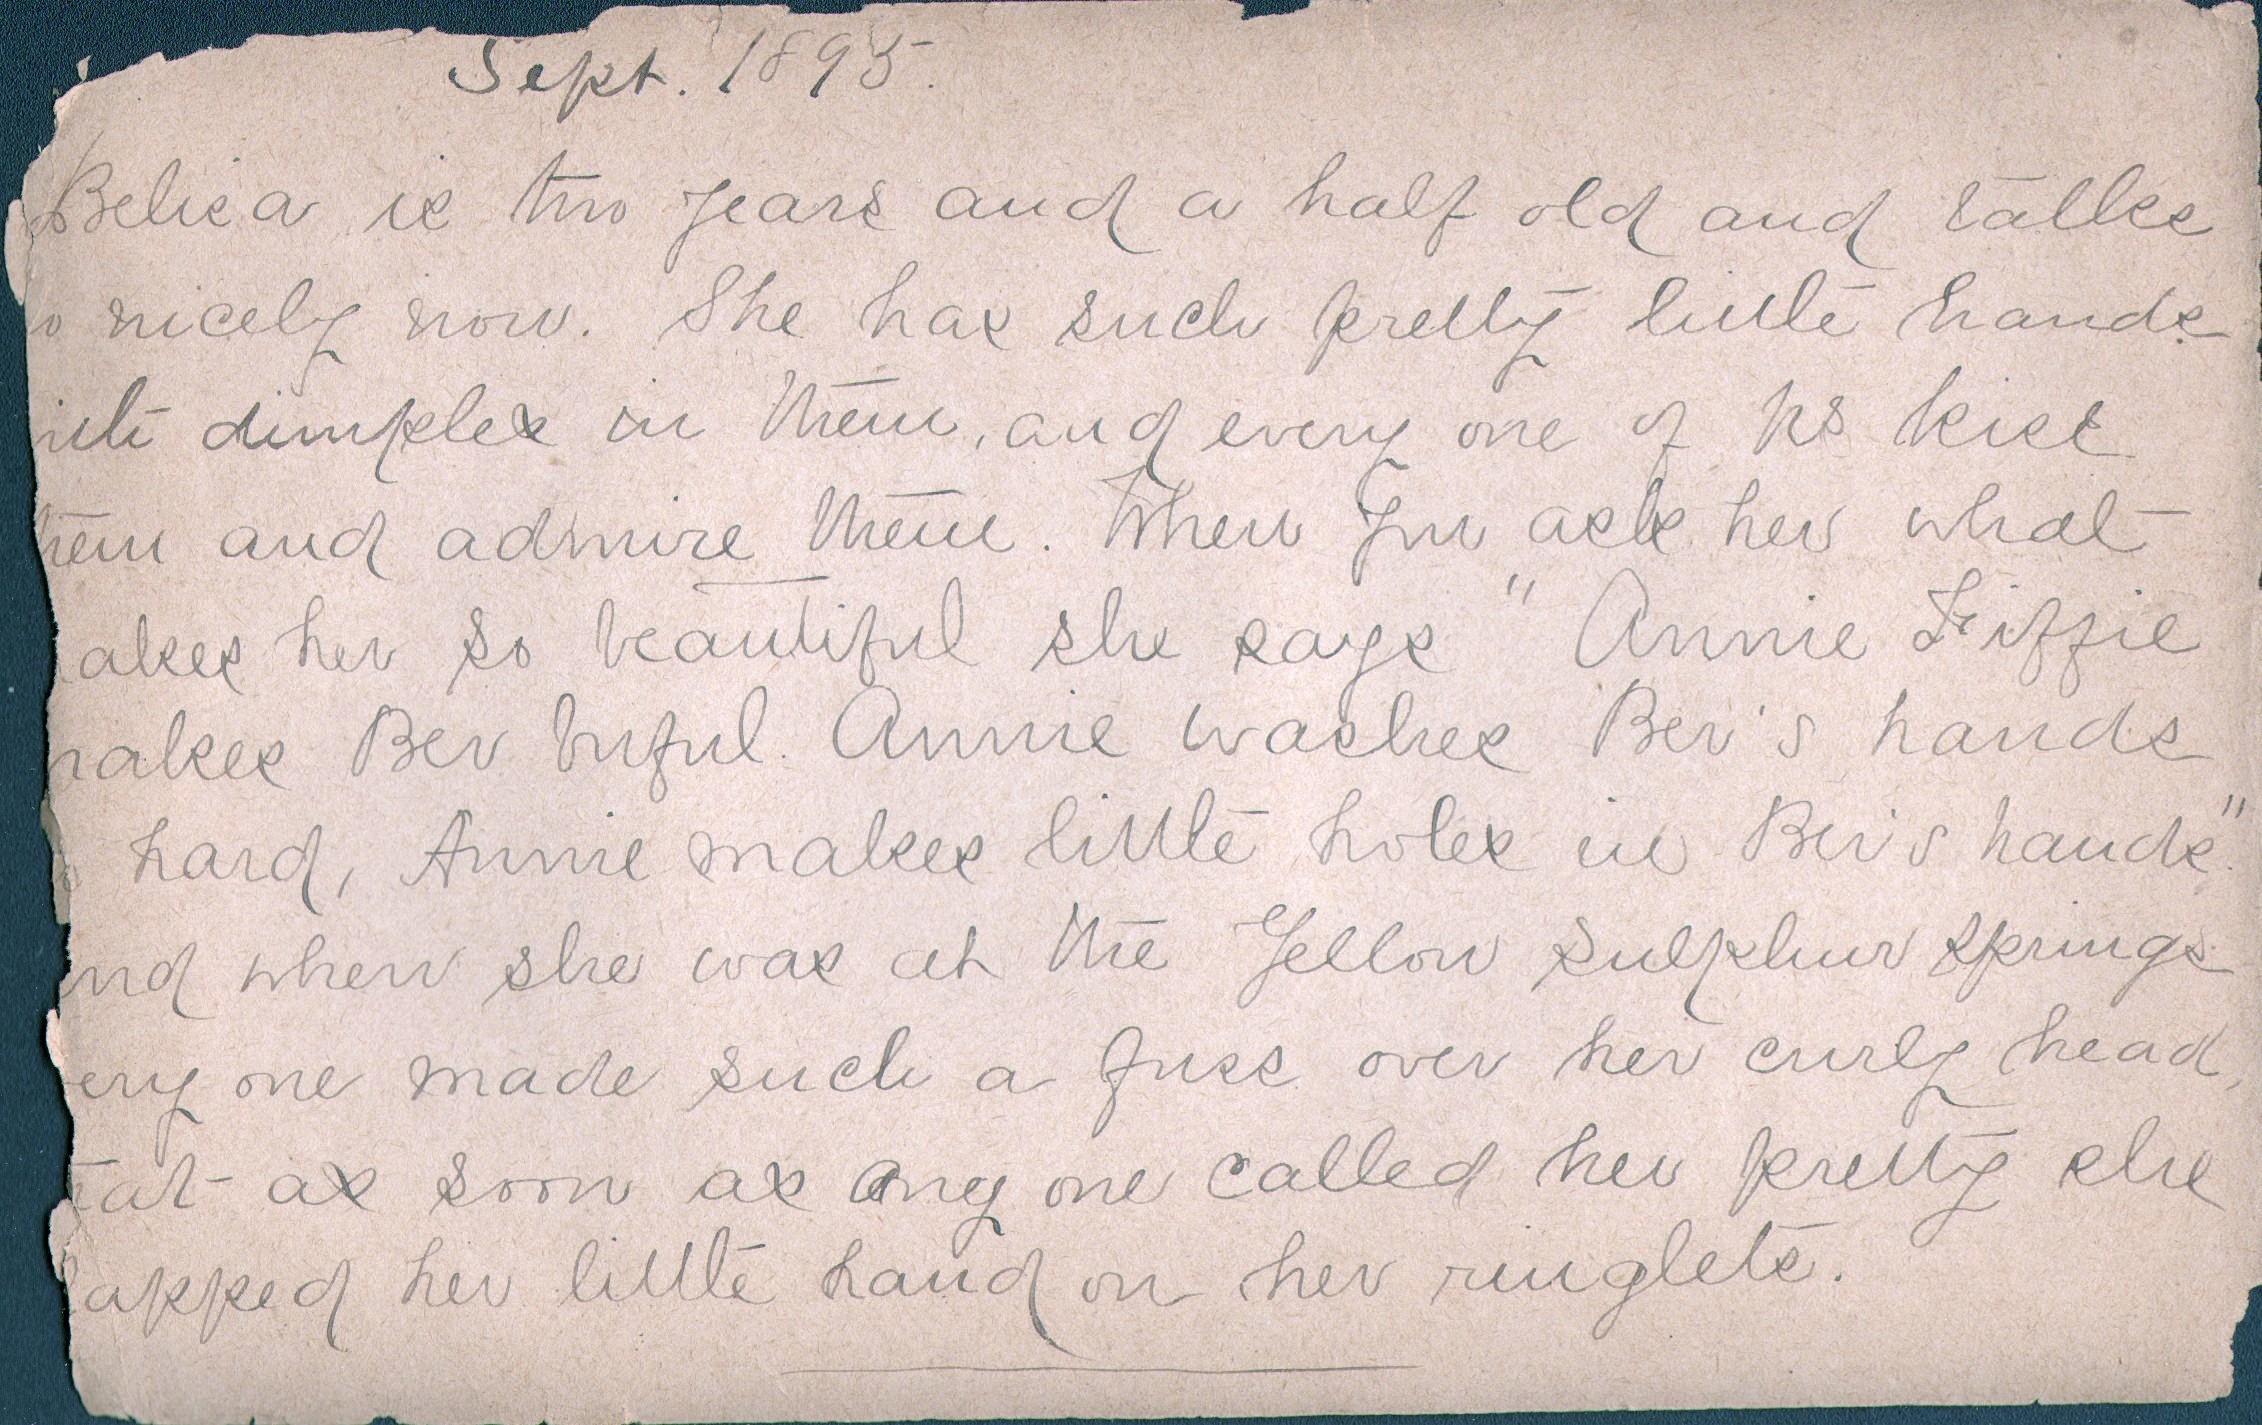 Sept. 1895.
Belica is two years and a half old and talks
o nicely now. She has such pretty little hands
ith dimples in them, and every one of us kiss
hem and admire them. When you ask her what
akes her so beautiful she says "Annie Fiffie
makes Bev buful. Annie washes Bev's hands
o hard, Annie makes little holes in Bev's hands"
and when she was at the Yellow Sulphur Springs
ery one made such a fuss over her curly head,
tat as soon as any one called her pretty she
lapped her little hand on her ringlets.